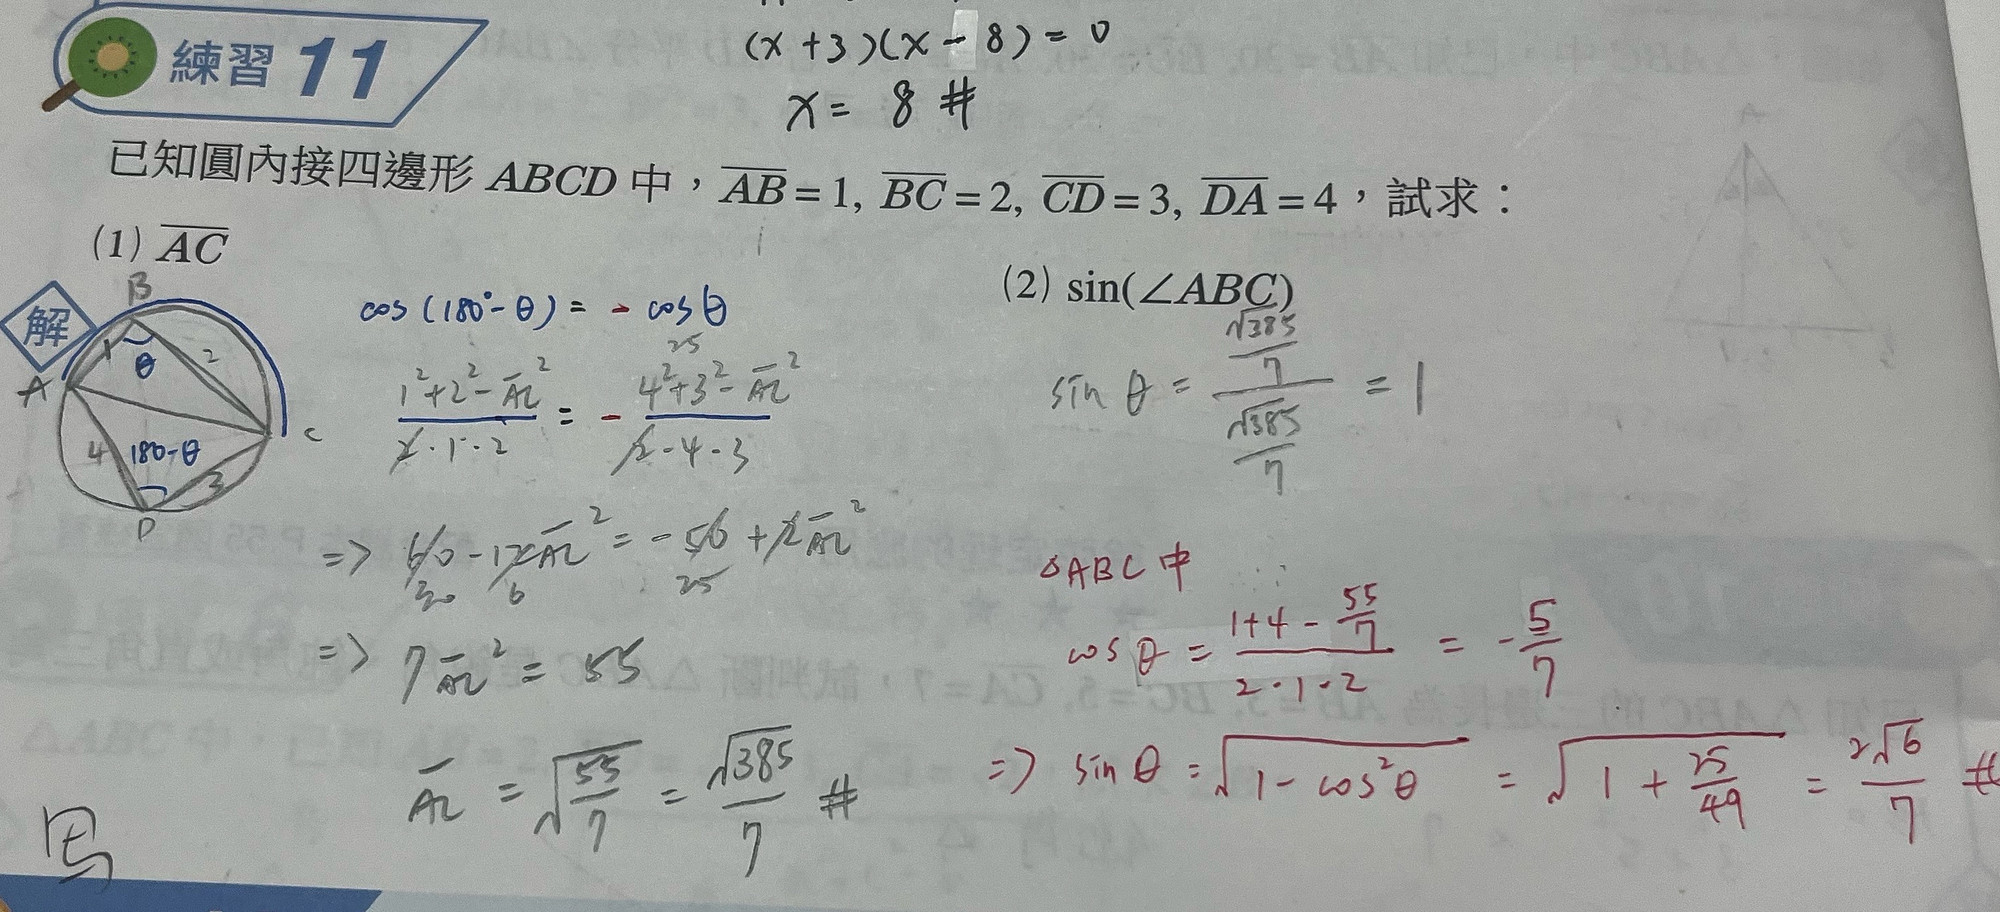 (x+3)(x-8)=0
x= 8 #
練習 11
已知圓內接四邊形 ABCD 中，AB=1, BC=2, CD=3, DA=4，試求：
(1) AC
(2) sin(∠ABC)
解
B
A
C
D
1
2
θ
4
180-θ
3
cos(180°-θ) = - cosθ
25
(1²+2²-AC²)/(2·1·2) = - (4²+3²-AC²)/(2·4·3)
=> 60-12AC² = -50+2AC²
30 6 25
=> 7AC² = 55
AC = √(55/7) = √385/7 #
sin θ = (√385/7)/(√385/7) = 1
△ABC 中
cosθ = (1+4-55/7)/(2·1·2) = -5/7
=> sinθ = √(1-cos²θ) = √(1+25/49) = 2√6/7 #